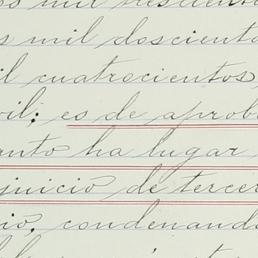 mil doscient
il cuatrocientos,
vil; es de aprob
anto ha lugar
juicio de tercer
io, condenand